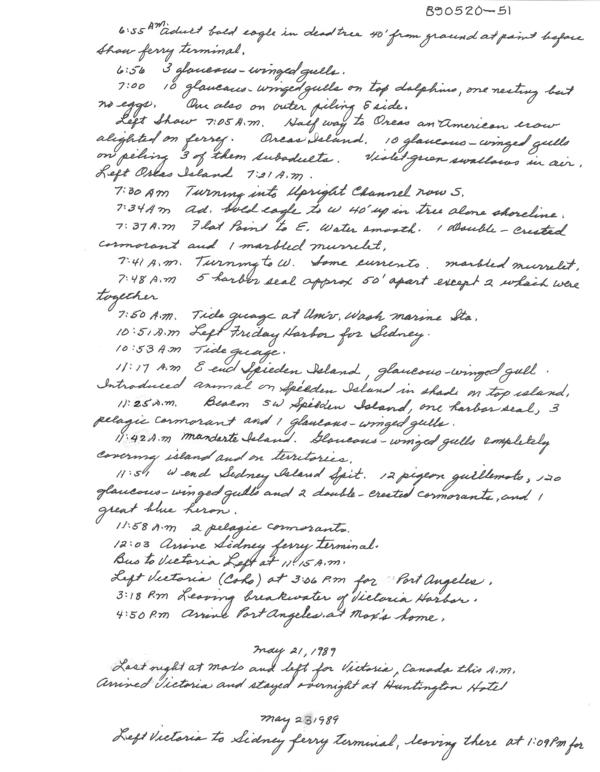 890520-51
6:55 AM. Adult bald eagle in dead tree 40' from ground at point before
Shaw ferry terminal.
6:56 3 glaucous-winged gulls.
7:00 10 glaucous-winged gulls on top dolphins, one nesting but
no eggs. One also on outer piling S side.
Left Shaw 7:05 A.M. Half way to Orcas an American crow
alighted on ferry. Orcas Island. 10 glaucous-winged gulls
on piling 3 of them subadults. Violet green swallows in air.
Left Orcas Island 7:21 A.M.
7:30 AM Turning into Upright Channel now S.
7:34 AM Ad. bald eagle to W 40' up in tree alone shoreline.
7:37 AM Flat Point to E. Water smooth. 1 Double-crested
cormorant and 1 marbled murrelet.
7:41 A.M. Turning to W. Some currents. marbled murrelet.
7:48 A.M 5 harbor seal approx 50' apart except 2 which were
together
7:50 A.M. Tide guage at Univ. Wash marine Sta.
10:51 A.M Left Friday Harbor for Sidney.
10:53 A.M Tide guage.
11:17 A.M E end Spieden Island, glaucous-winged gull.
Introduced animal on Spieden Island in shade on top island.
11:25 A.M. Beacon SW Spieden Island, one harbor seal, 3
pelagic cormorant and 1 glaucous-winged gulls.
11:42 A.M manderte Island. Glaucous-winged gulls completely
covering island and on territories.
11:51 W end Sidney Island Spit. 12 pigeon guillemots, 120
glaucous-winged gulls and 2 double-crested cormorants, and 1
great blue heron.
11:58 A.M 2 pelagic cormorants.
12:03 Arrive Sidney ferry terminal.
Bus to Victoria Left at 11:15 A.M.
Left Victoria (Coho) at 3:06 P.M for Port Angeles.
3:18 P.M Leaving breakwater of Victoria Harbor.
4:50 P.M Arrive Port Angeles at Mox's home.
May 21, 1989
Last night at Moxs and left for Victoria, Canada this A.M.
Arrived Victoria and stayed overnight at Huntington Hotel
May 23 1989
Left Victoria to Sidney ferry terminal, leaving there at 1:09 PM for